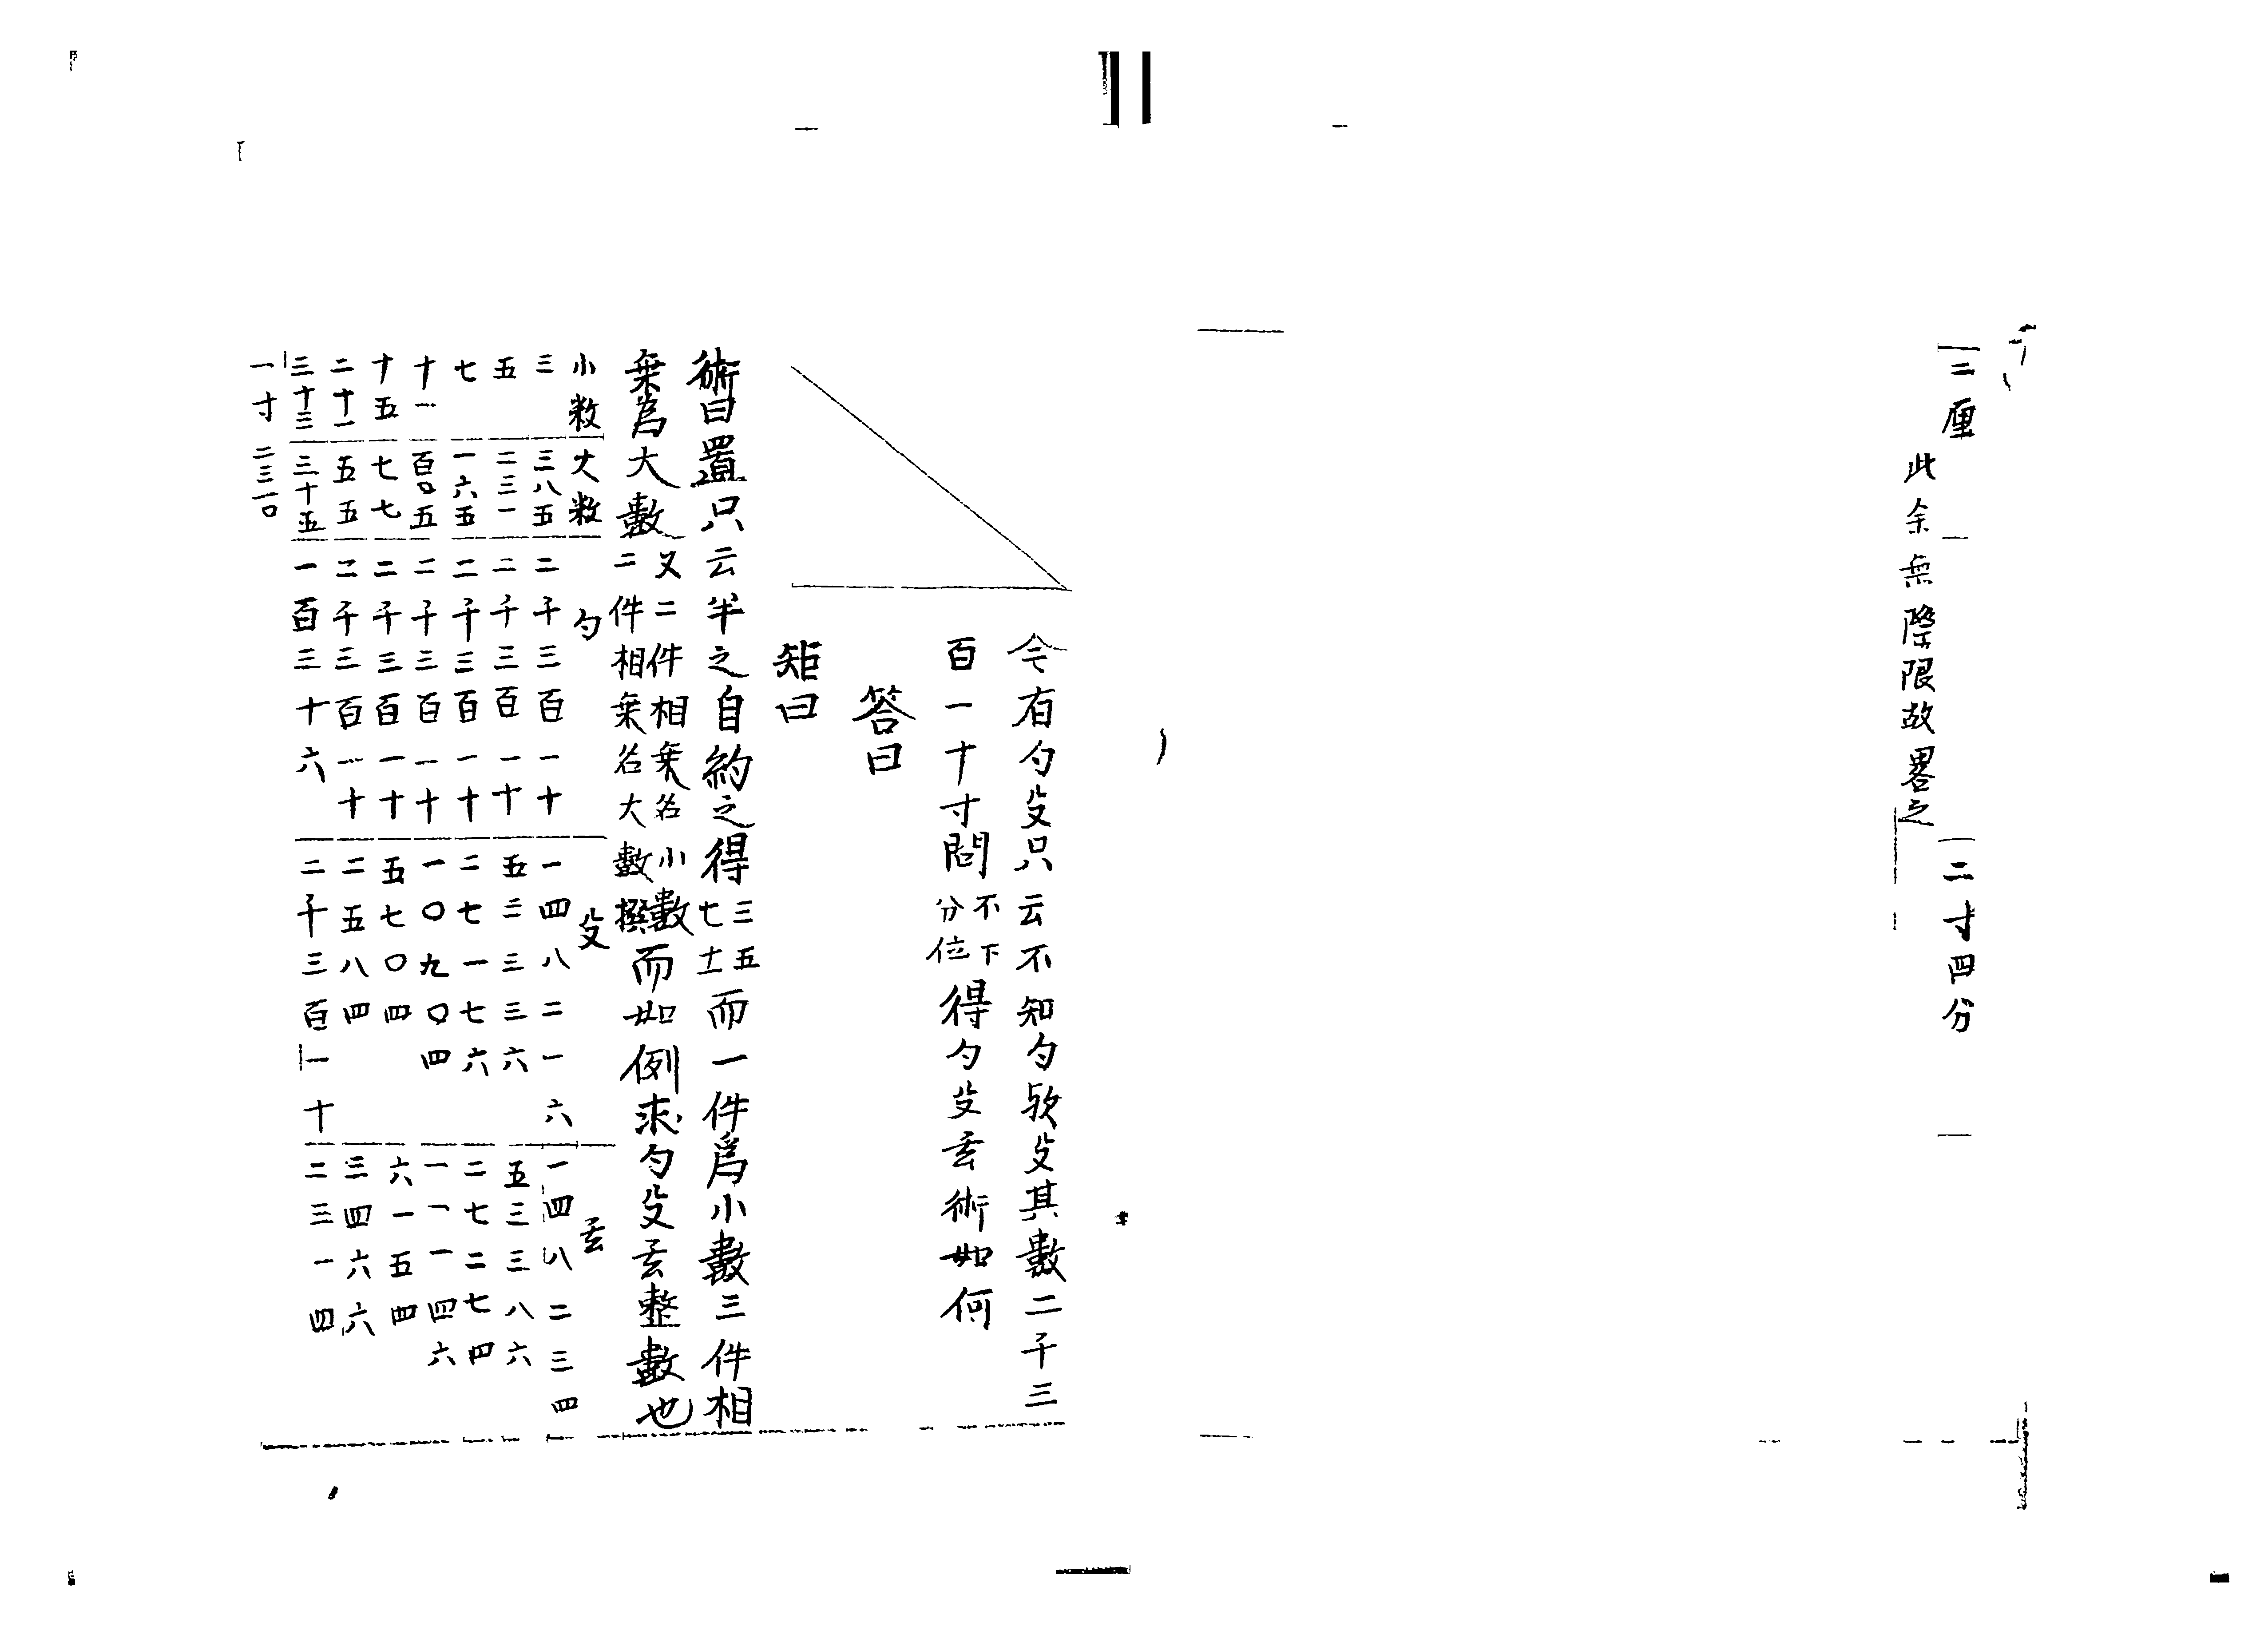 二厘　二寸四分
此余無際限故畧之
今有勾殳只云不知勾欤殳其數二千三
百一十寸問不下分位得勾殳玄術如何
答曰
矩曰
術曰置只云半之自約之得三五七十一而一件爲小數三件相
乗爲大數又二件相乗名小數二件相乗名大數撰而如例求勾殳玄整數也
小数　大数　勾　殳　玄
三　三八五　二千三百一十　一四八二一六　一四八二三四
五　二三一　二千三百一十　五三三三六　五三三八六
七　一六五　二千三百一十　二七一七六　二七二七四
十一　百〇五　二千三百一十　一〇九〇四　一一一四六
十五　七七　二千三百一十　五七〇四　六一五四
二十一　五五　二千三百一十　二五八四　三四六六
三十三　三十五　一百三十六　二千三百一十　二三一四
一寸　二三一〇